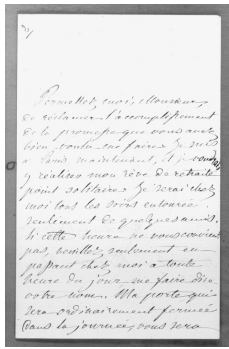 Permettez, moi, Monsieur,
de réclamer l'accomplissement
de la promesse que vous avez
bien voulu me faire. Je suis
à Paris maintenant, et je voudrais
y réaliser mon rêve de retraite
point solitaire. Je serai chez
moi tous les soirs entourée
seulement de quelques amis.
Si cette heure ne vous convient
pas, veuillez seulement en
passant chez moi à toute
heure du jour me faire dire
votre nom. Ma porte qui
sera ordinairement fermée
dans la journée, vous sera